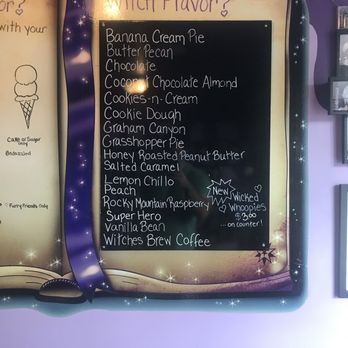 Witch Flavor?
or?
with your
Cake or Sugar
Only
Furry Friends Only
Banana Cream Pie
Butter Pecan
Chocolate
Coconut Chocolate Almond
Cookies-n-Cream
Cookie Dough
Graham Canyon
Grasshopper Pie
Honey Roasted Peanut Butter
Salted Caramel
Lemon Chillo
Peach
Rocky Mountain Raspberry
Super Hero
Vanilla Bean
Witches Brew Coffee
New
Wicked
Whoopies
$3.00
...on counter!